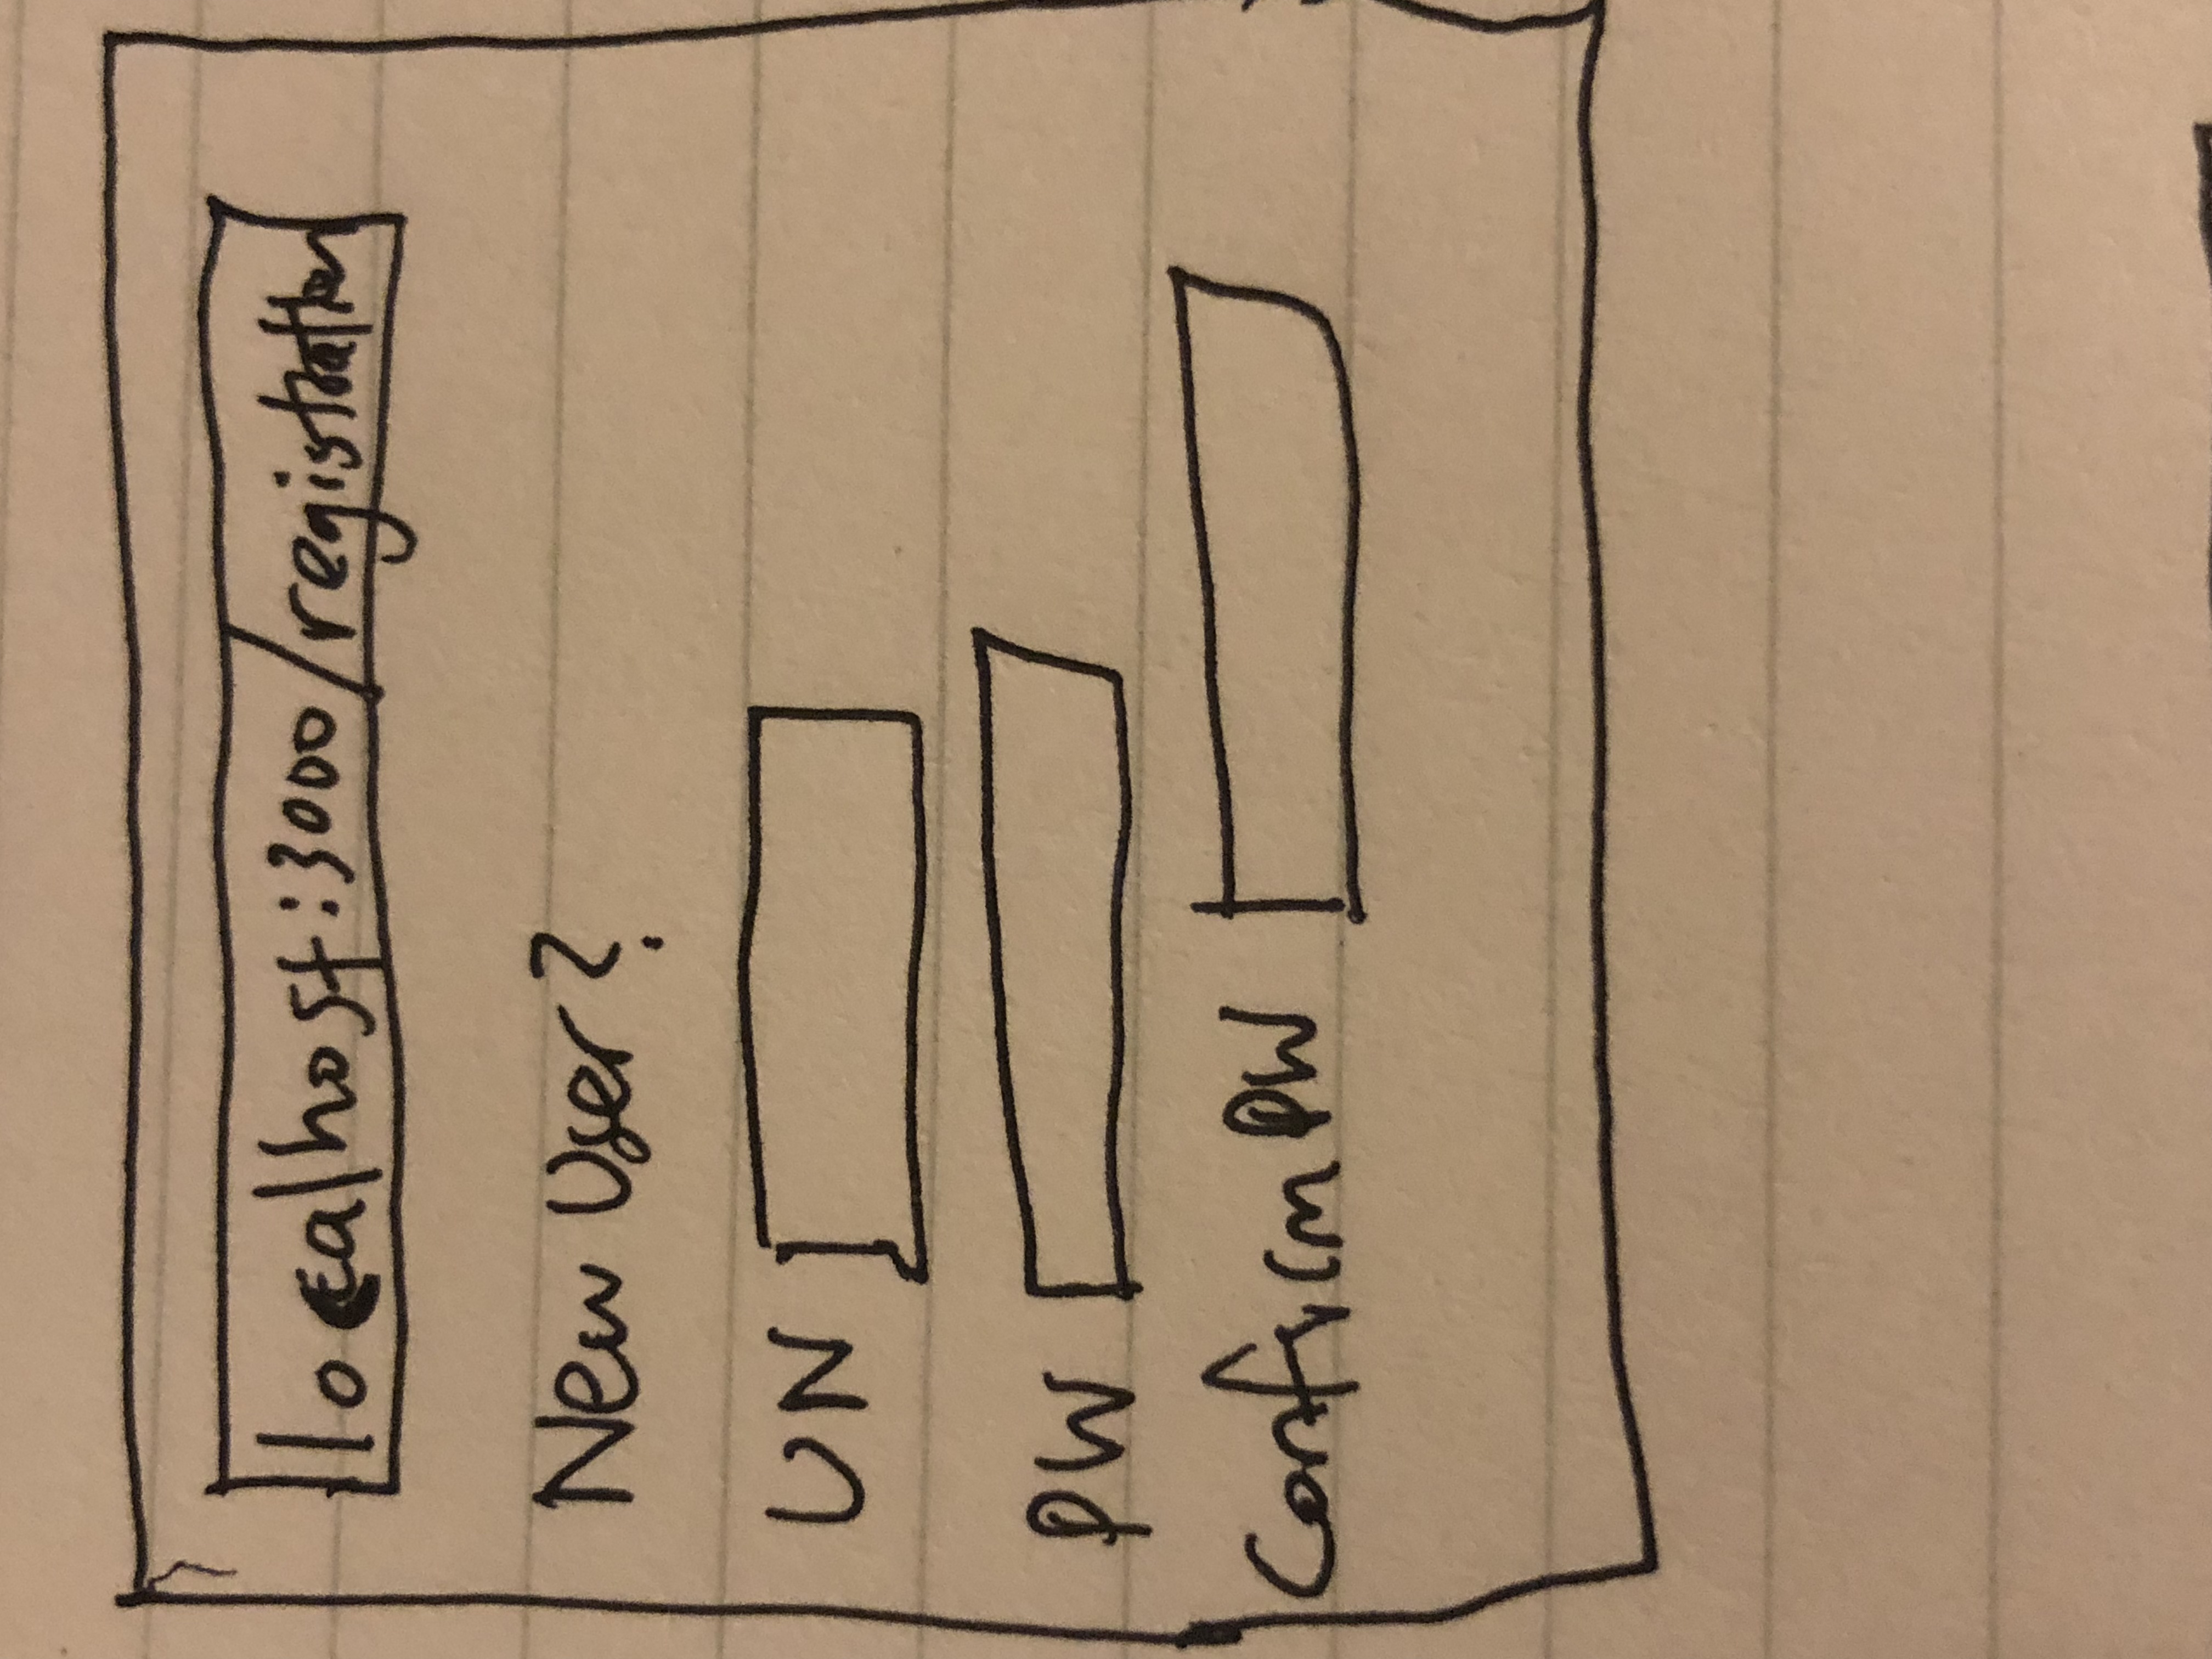 localhost:3000/registration
New User?
UN
PW
Confirm PW